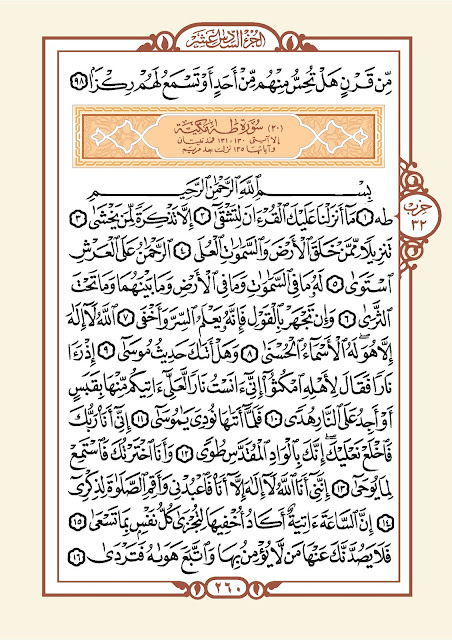 الجزء السادس عشر
مِّن قَرْنٍ هَلْ تُحِسُّ مِنْهُم مِّنْ أَحَدٍ أَوْ تَسْمَعُ لَهُمْ رِكْزًا ٩٨
(٢٠) سورة طه مكية
إلا آيتي ١٣٠ و ١٣١ فمدنيتان
وآياتها ١٣٥ نزلت بعد مريم
بِسْمِ اللَّهِ الرَّحْمَٰنِ الرَّحِيمِ
حزب
٣٢
طه ١ مَا أَنزَلْنَا عَلَيْكَ اَلْقُرْءَانَ لِتَشْقَىٰ ٢ إِلَّا تَذْكِرَةً لِّمَنْ يَّخْشَىٰ ٣
تَنزِيلًا مِّمَّنْ خَلَقَ اَلْأَرْضَ وَالسَّمَٰوَٰتِ اِلْعُلَى ٤ اَلرَّحْمَٰنُ عَلَى اَلْعَرْشِ
اِسْتَوَىٰ ٥ لَهُۥ مَا فِي اِلسَّمَٰوَٰتِ وَمَا فِي اِلْأَرْضِ وَمَا بَيْنَهُمَا وَمَا تَحْتَ
اَلثَّرَىٰ ٦ وَإِن تَجْهَرْ بِالْقَوْلِ فَإِنَّهُۥ يَعْلَمُ اُلسِّرَّ وَأَخْفَى ٧ اَللَّهُ لَا إِلَٰهَ
إِلَّا هُوَ لَهُ اُلْأَسْمَاءُ اُلْحُسْنَىٰ ٨ وَهَلْ أَتَىٰكَ حَدِيثُ مُوسَىٰ ٩ إِذْ رَءَا
نَارًا فَقَالَ لِأَهْلِهِ اِمْكُثُوا إِنِّيَ ءَانَسْتُ نَارًا لَّعَلِّيَ ءَاتِيكُم مِّنْهَا بِقَبَسٍ
أَوْ أَجِدُ عَلَى اَلنَّارِ هُدًى ١٠ فَلَمَّا أَتَىٰهَا نُودِيَ يَٰمُوسَىٰ ١١ إِنِّيَ أَنَا رَبُّكَ
فَاخْلَعْ نَعْلَيْكَ إِنَّكَ بِالْوَادِ اِلْمُقَدَّسِ طُوَىٰ ١٢ وَأَنَا اَخْتَرْتُكَ فَاسْتَمِعْ
لِمَا يُوحَىٰ ١٣ إِنَّنِيَ أَنَا اَللَّهُ لَا إِلَٰهَ إِلَّا أَنَا فَاعْبُدْنِي وَأَقِمِ اِلصَّلَوٰةَ لِذِكْرِيَ
١٤ إِنَّ اَلسَّاعَةَ ءَاتِيَةٌ أَكَادُ أُخْفِيهَا لِتُجْزَىٰ كُلُّ نَفْسٍ بِمَا تَسْعَىٰ ١٥
فَلَا يَصُدَّنَّكَ عَنْهَا مَن لَّا يُؤْمِنُ بِهَا وَاتَّبَعَ هَوَىٰهُ فَتَرْدَىٰ ١٦
٢٦٠